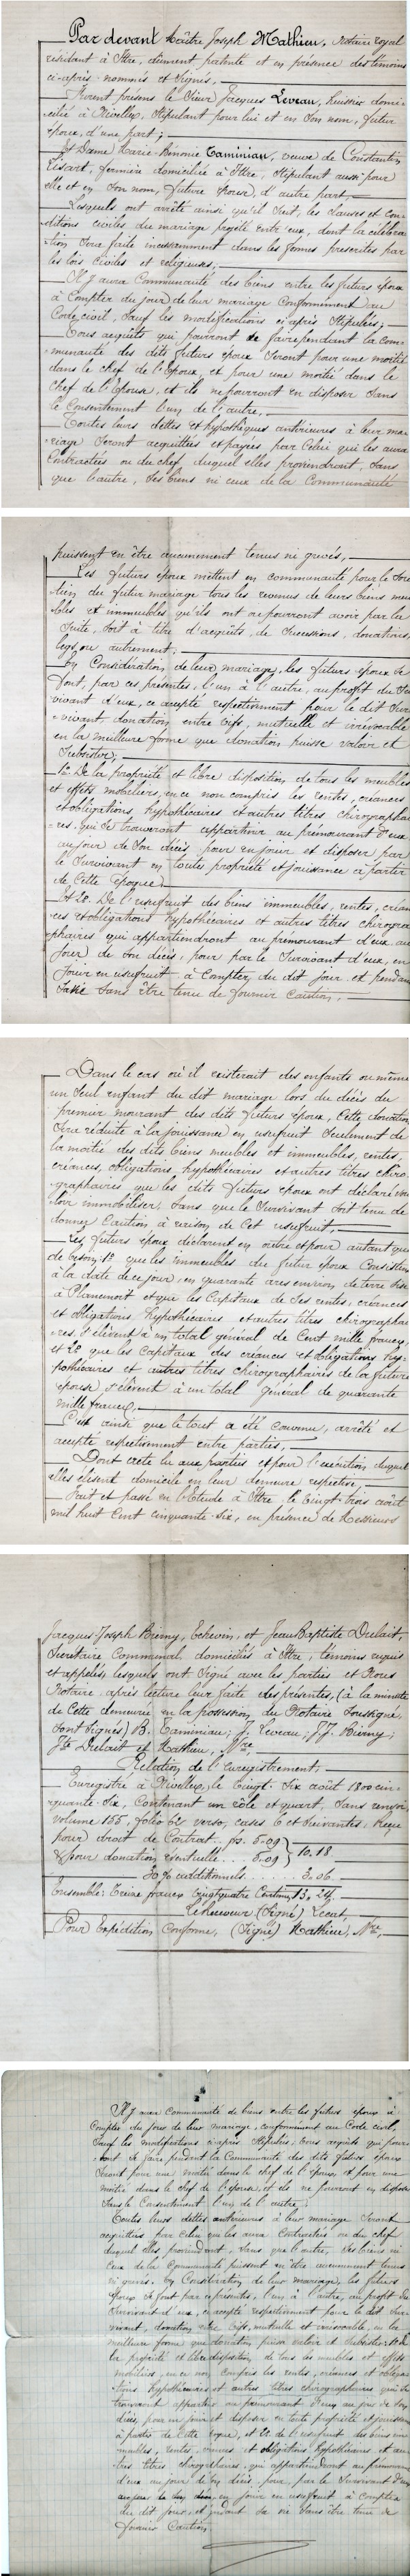 Par devant Maître Joseph Mathieu, Notaire royal
résidant à Ittre, dûment patenté et en présence des témoins
ci-après nommés et signés,
Furent présens le Sieur Jacques Leveau, huissier domi-
cilié à Nivelles, stipulant pour lui et en son nom, futur
époux, d'une part;
Et Dame Marie-Bénonie Taminiau, veuve de Constantin
Lisart, fermière domiciliée à Ittre, stipulant aussi pour
elle et en son nom, future épouse, d'autre part,
Lesquels ont arrêté ainsi qu'il suit, les clauses et con-
ditions civiles du mariage projeté entr'eux, dont la célébra-
tion sera faite incessamment dans les formes prescrites par
les lois civiles et religieuses,
Il y aura Communauté des biens entre les futurs époux
à compter du jour de leur mariage conformément au
Code civil, sauf les modifications ci après stipulées;
Tous acquêts qui pourront se faire pendant la com-
munauté des dits futurs époux seront pour une moitié
dans le chef de l'époux, et pour une moitié dans le
chef de l'épouse, et ils ne pourront en disposer sans
le consentement l'un de l'autre,
Toutes leurs dettes et hypothèques antérieures à leur ma-
riage seront acquittées et payées par celui qui les aura
contractées ou du chef duquel elles proviendront, sans
que l'autre, ses biens ni ceux de la Communauté
puissent en être aucunement tenus ni grevés,
Les futurs époux mettent en communauté pour le sou-
tien du futur mariage tous les revenus de leurs biens meu-
bles et immeubles qu'ils ont ou pourront avoir par la
suite, soit à titre d'acquêts, de successions, donations,
legs ou autrement.
En Considération de leur mariage, les futurs époux se
font, par ces présentes, l'un à l'autre, au profit du sur-
vivant d'eux, ce accepté respectivement pour le dit sur-
vivant donation entre vifs, mutuelle et irrévocable
en la meilleure forme que donation puisse valoir et
subsister;
1º De la propriété et libre disposition de tous les meubles
et effets mobiliers, en ce non compris les rentes, créances
et obligations hypothécaires et autres titres chirographai-
res qui se trouveront appartenir au prémourant d'eux
au jour de son décès pour en jouir et disposer par
le survivant en toute propriété et jouissance à partir
de cette époque.
Et 2º. De l'usufruit des biens immeubles, rentes, créan-
ces et obligations hypothécaires et autres titres chirogra-
phaires qui appartiendront au prémourant d'eux au
jour de son décès, pour par le survivant d'eux, en
jouir en usufruit à compter du dit jour et pendant
sa vie sans être tenu de fournir caution.
Dans le cas où il existerait des enfants ou même
un seul enfant du dit mariage lors du décès du
premier mourant des dits futurs époux, cette donation
sera réduite à la jouissance en usufruit seulement de
la moitié des dits biens meubles et immeubles, rentes,
créances, obligations hypothécaires et autres titres chiro-
graphaires que les dits futurs époux ont déclaré vou-
loir immobiliser, sans que le survivant soit tenu de
donner caution à raison de cet usufruit,
Les futurs époux déclarent en outre et pour autant que
de besoin, 1º que les immeubles du futur époux consistent
à la date de ce jour, en quarante ares environ de terre sise
à Plancenoit et que les Capitaux de ses rentes, créances
et obligations hypothécaires et autres titres chirographai-
res s'élèvent à un total général de Cent mille francs,
et 2º que les Capitaux des créances et obligations hy-
pothécaires et autres titres chirographaires de la future
épouse s'élèvent à un total général de quarante
mille francs,
C'est ainsi que le tout a été convenu, arrêté et
accepté respectivement entre parties,
Dont acte lu aux parties et pour l'exécution duquel
elles élisent domicile en leur demeure respective;
Fait et passé en l'Etude à Ittre, le vingt-trois août
mil huit cent cinquante-six, en présence de Messieurs
Jacques-Joseph Bierny, Echevin, et Jean Baptiste Delait,
secrétaire Communal, domiciliés à Ittre, témoins requis
et appelés, lesquels ont signé avec les parties et Nous
Notaire, après lecture leur faite des présentes, (à la minute
de cette demeurée en la possession du Notaire soussigné,
sont signés) B. Taminiau; J. Leveau; J.J. Bierny;
Jte Delait et Mathieu, Nre,
Relation de l'enregistrement,
Enregistré à Nivelles, le vingt-six août 1800 cin-
quante-six, contenant un rôle et quart, sans renvoi,
volume 155, folio 62 verso, cases 6 et suivantes. Reçu
pour droit de Contrat. frs. 5.09
& pour donation éventuelle... 5.09 } 10.18
30 % additionnels... 3.06
Ensemble: Treize francs vingtquatre Centimes, 13,24.
Le Receveur (Signé) Lecat,
Pour Expédition Conforme, (Signé) Mathieu, Nre,
Il y aura Communauté de biens entre les futurs époux à
compter du jour de leur mariage, conformément au Code civil,
sauf les modifications ci-après stipulées. Tous acquêts qui pour-
ront se faire pendant la Communauté des dits futurs époux
seront pour une moitié dans le chef de l'époux et pour une
moitié dans le chef de l'épouse, et ils ne pourront en disposer
sans le Consentement l'un de l'autre;
Toutes leurs dettes antérieures à leur mariage seront
acquittées par celui qui les aura contractées ou du chef
duquel elles proviendront, sans que l'autre, ses biens ni
ceux de la Communauté puissent en être aucunement tenus
ni grevés. En Considération de leur mariage, les futurs
époux se font par ces présentes, l'un à l'autre, au profit du
survivant d'eux, ce accepté respectivement pour le dit sur-
vivant, donation entre vifs, mutuelle et irrévocable, en la
meilleure forme que donation puisse valoir et subsister: 1º de
la propriété et libre disposition, de tous les meubles et effets
mobiliers, en ce non compris les rentes, créances et obliga-
tions hypothécaires et autres titres chirographaires qui se
trouveront appartenir au prémourant d'eux au jour de son
décès, pour en jouir et disposer en toute propriété et jouissance
à partir de cette époque, et 2º. de l'usufruit des biens im-
meubles, rentes, créances et obligations hypothécaires et au-
tres titres chirographaires, qui appartiendront au prémourant
d'eux au jour de son décès, pour, par le survivant d'eux
au jour de son décès, en jouir en usufruit à compter
du dit jour, et pendant sa vie sans être tenu de
fournir Caution.